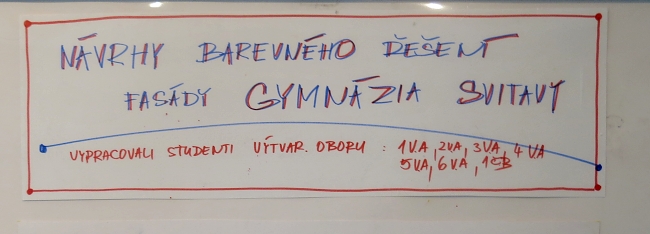 NÁVRHY BAREVNÉHO ŘEŠENÍ
FASÁDY GYMNÁZIA SVITAVY
VYPRACOVALI STUDENTI VÝTVAR. OBORU : 1VA, 2VA, 3VA, 4VA
5VA, 6VA, 1SB